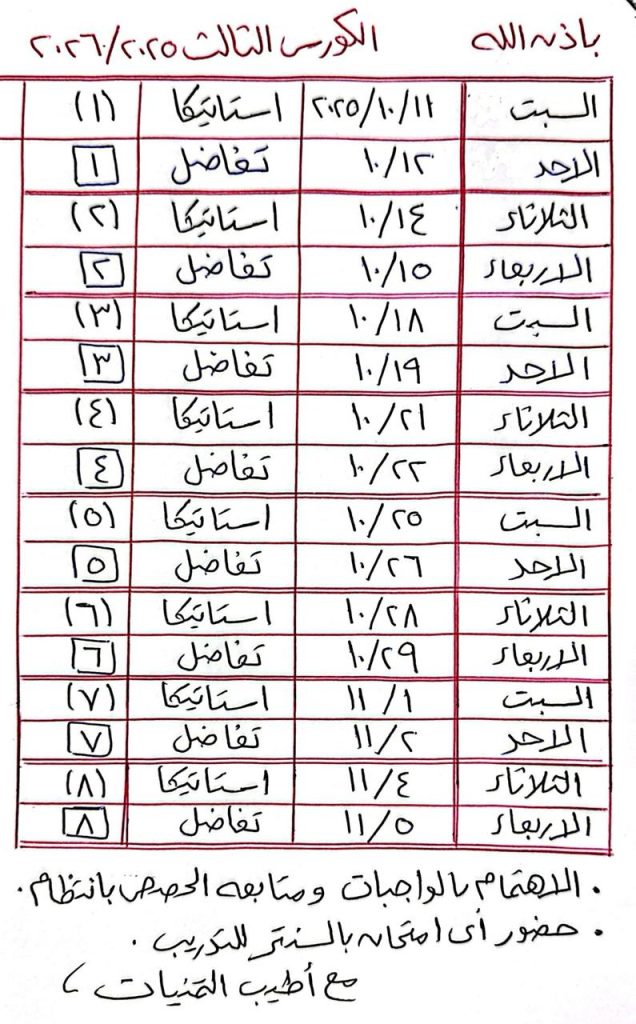 باذن الله الكورس الثالث ٢٠٢٦/٢٠٢٥
السبت ٢٠٢٥/١٠/١١ استاتيكا (١)
الاحد ١٠/١٢ تفاضل ١
الثلاثاء ١٠/١٤ استاتيكا (٢)
الاربعاء ١٠/١٥ تفاضل ٢
السبت ١٠/١٨ استاتيكا (٣)
الاحد ١٠/١٩ تفاضل ٣
الثلاثاء ١٠/٢١ استاتيكا (٤)
الاربعاء ١٠/٢٢ تفاضل ٤
السبت ١٠/٢٥ استاتيكا (٥)
الاحد ١٠/٢٦ تفاضل ٥
الثلاثاء ١٠/٢٨ استاتيكا (٦)
الاربعاء ١٠/٢٩ تفاضل ٦
السبت ١١/١ استاتيكا (٧)
الاحد ١١/٢ تفاضل ٧
الثلاثاء ١١/٤ استاتيكا (٨)
الاربعاء ١١/٥ تفاضل ٨
. الاهتمام بالواجبات ومتابعه الحصص بانتظام.
. حضور أى امتحان بالسنتر للتدريب .
مع أطيب التمنيات